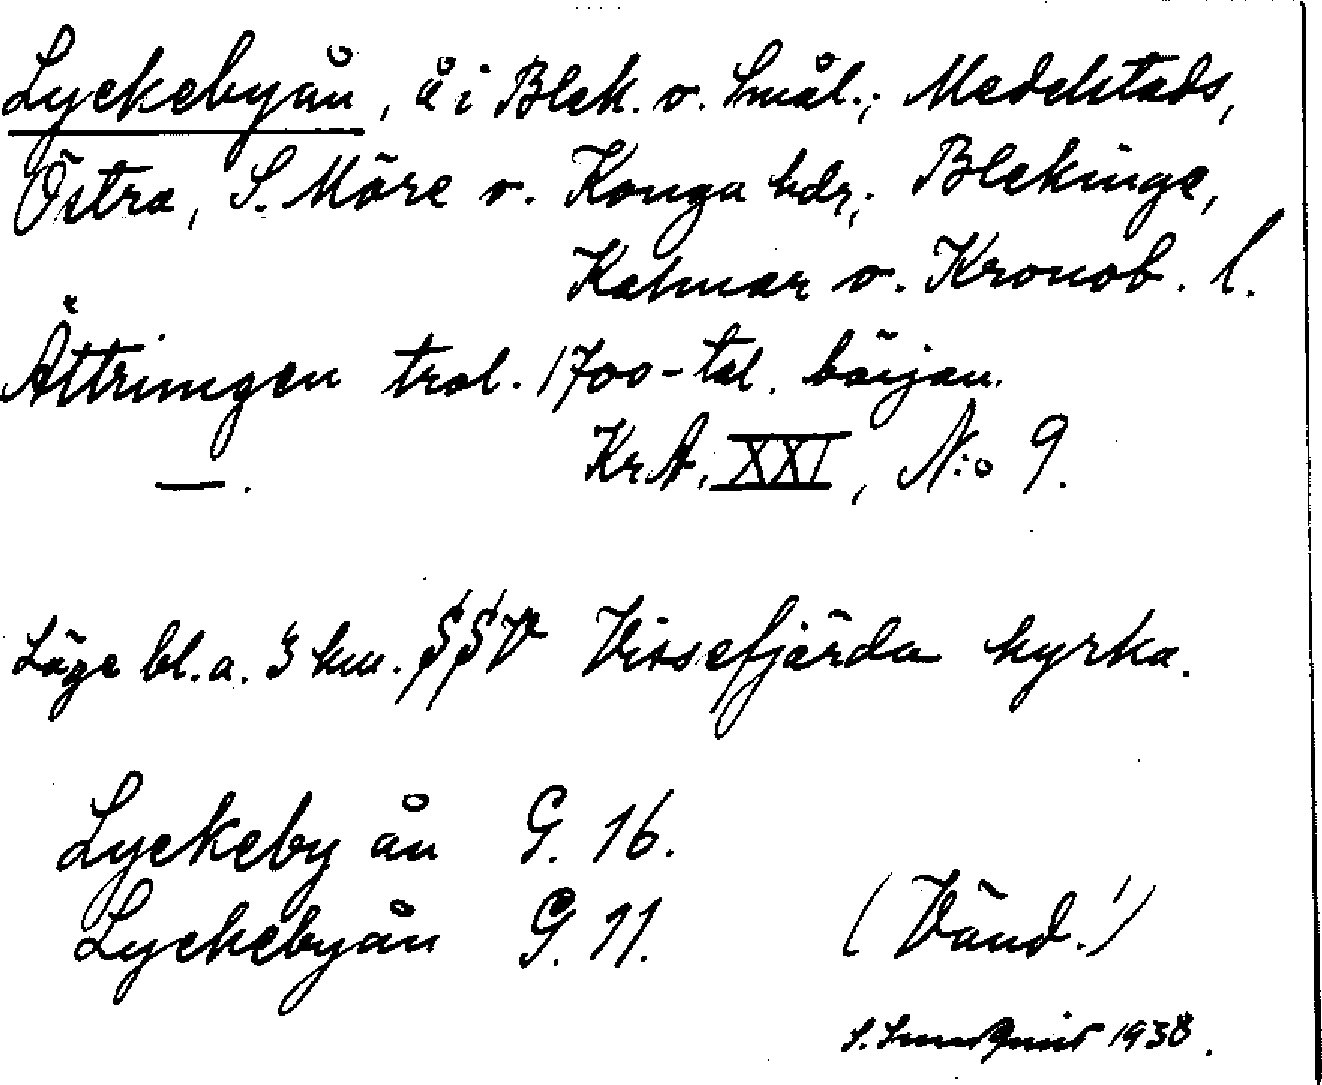 Lyckebyån, å i Blek. o. Smål.; Medelstads,
Östra, S. Möre o. Konga hdr,; Blekinge,
Kalmar o. Kronob. l.
Ättringen trol. 1700-tal. början.
—. Kr.A. XXI, N:o 9.
Läge bl.a. 3 km. SSV Vissefjärda kyrka.
Lyckeby ån G. 16.
Lyckebyån G. 11. (Vänd!)
S. 1938.